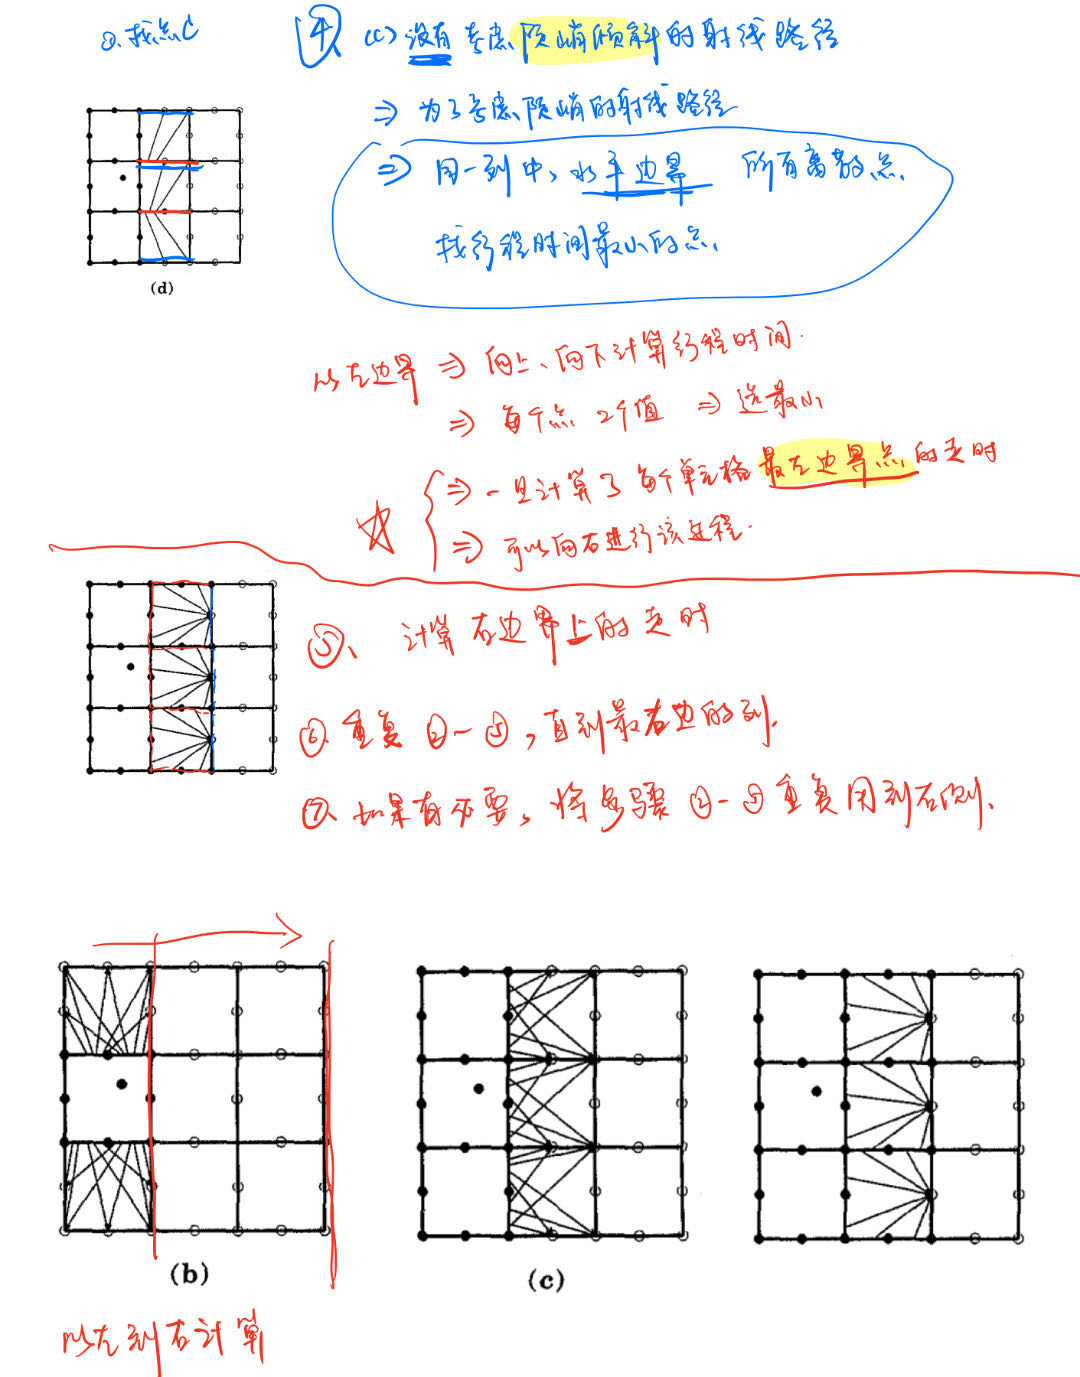 ②、找点C
④、(c)没有考虑陡峭倾斜的射线路径
⇒ 为了考虑陡峭的射线路径
⇒ 用一列中、水平边界 所有离散点、
找行程时间最小的点、
(d)
从左边界 ⇒ 向上、向下计算行程时间.
⇒ 每个点 2个值 ⇒ 选最小
⇒ 一旦计算了每个单元格最左边界点的走时
⇒ 可以向右进行该过程.
⑤、计算右边界上的走时
⑥、重复②-⑤，直到最右边的列.
⑦、如果有必要，将步骤②-⑤重复用到右侧.
(b)
(c)
从左到右计算